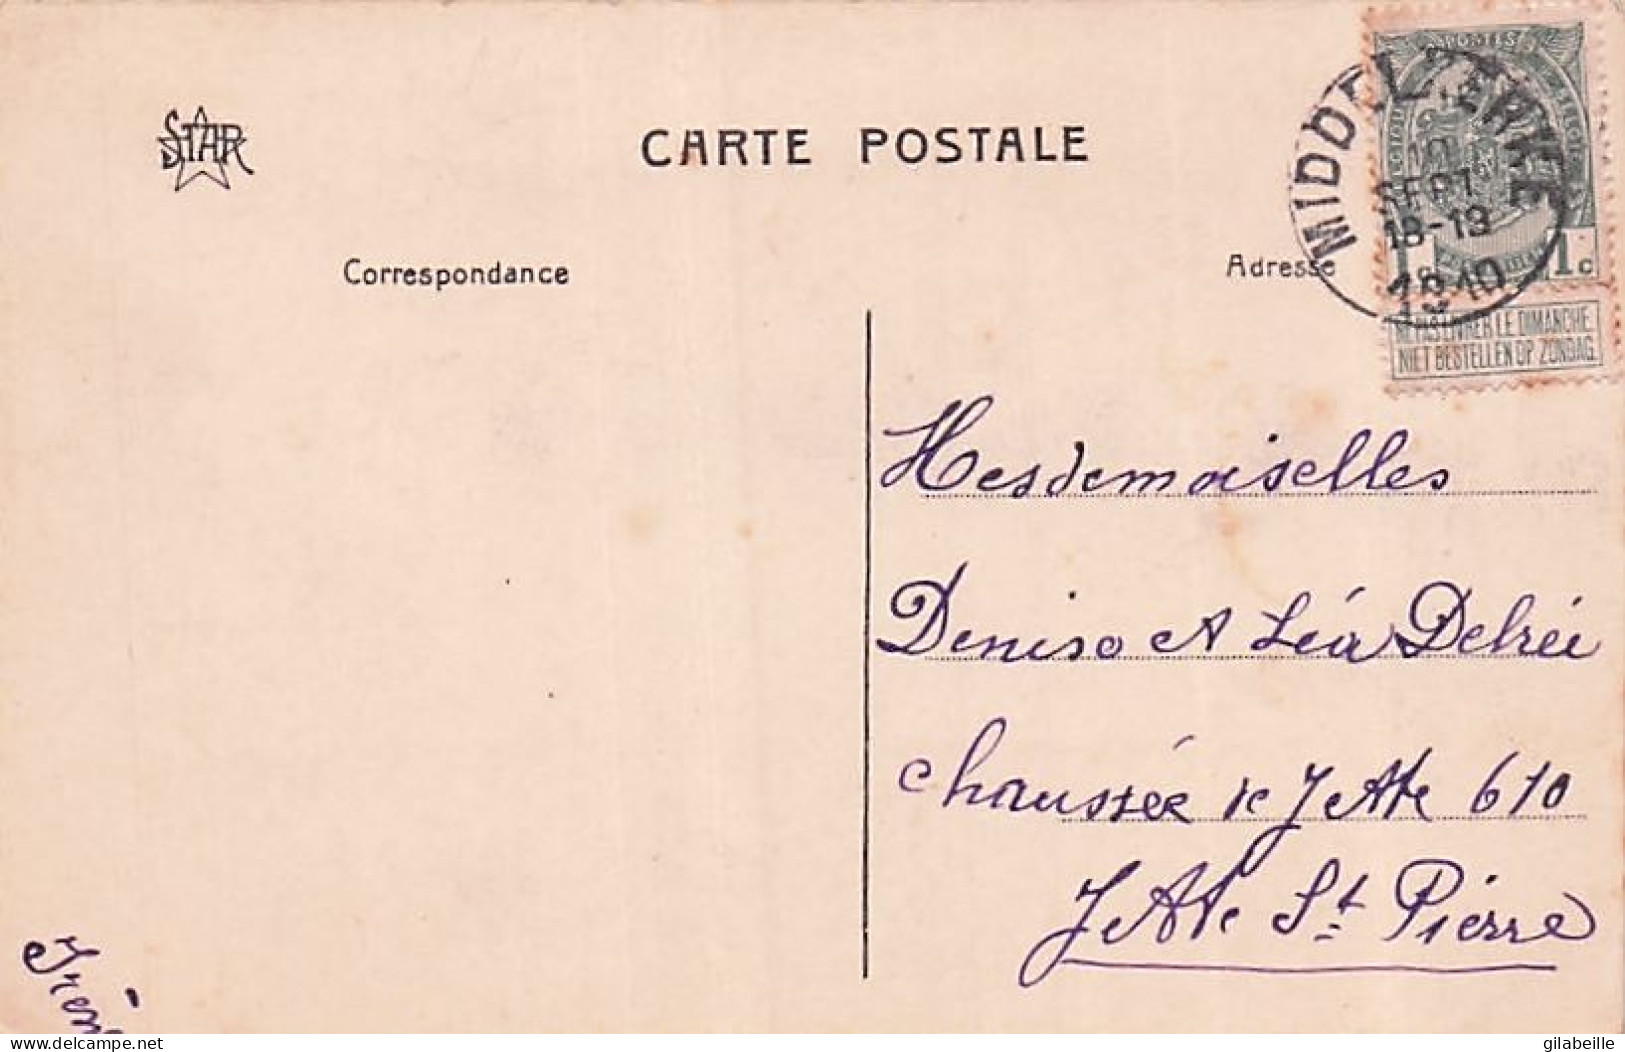 STAR
CARTE POSTALE
Correspondance
Adresse
POSTES
MIDDELKERKE
10
SEPT
18-19
1910
1 c
NE PAS LIVRER LE DIMANCHE
NIET BESTELLEN OP ZONDAG
Mesdemoiselles
Denise & Léa Delrée
chaussée de Jette 610
Jette St Pierre
Irèn
delcampe.net
gilabeille